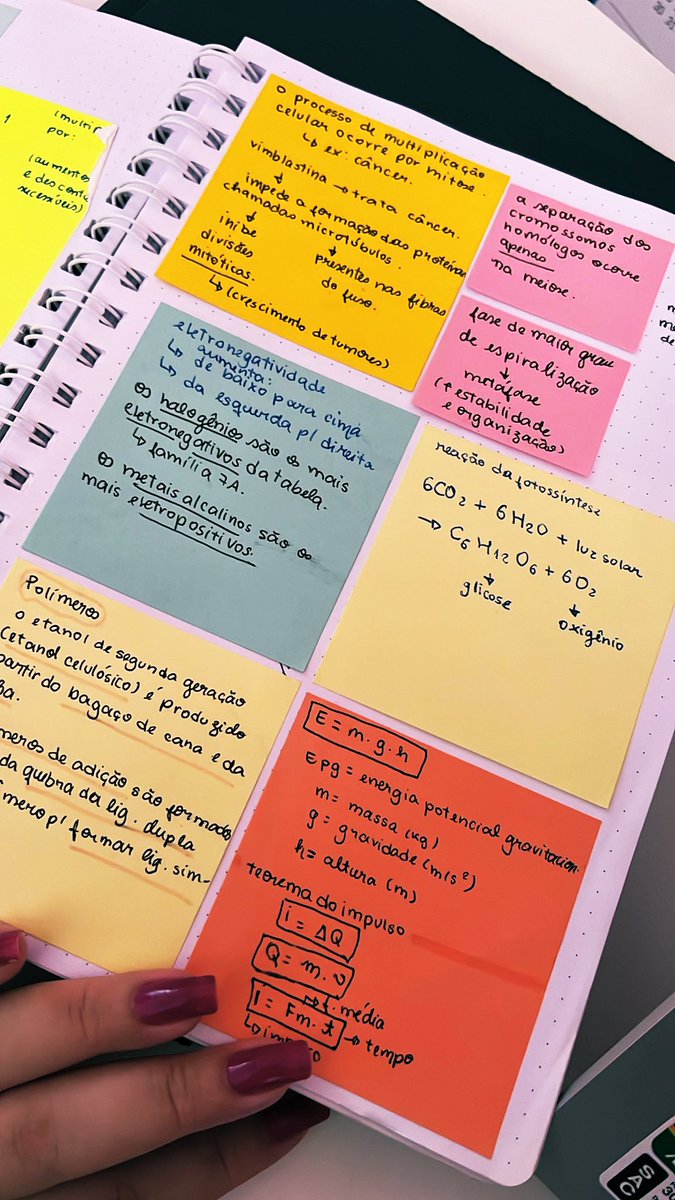 1
(multir
por:
(aumentos
e descont
sucessivos)
o processo de multiplicação
celular ocorre por mitose.
↳ ex: câncer.
vimblastina → trata câncer.
↓
impede a formação das proteínas
chamadas microtúbulos.
↓
inibe
divisões
mitóticas.
↳ (crescimento de tumores)
↓
presentes nas fibras
do fuso.
a separação dos
cromossomos
homólogos ocorre
apenas
na meiose.
fase de maior grau
de espiralização
↓
metáfase
(↑ estabilidade
e organização)
eletronegatividade
↳ aumenta:
↳ de baixo para cima
↳ da esquerda p/ direita
Os halogênios são os mais
eletronegativos da tabela.
↳ família 7A.
Os metais alcalinos são os
mais eletropositivos.
reação da fotossíntese
6CO₂ + 6H₂O + luz solar
→ C₆H₁₂O₆ + 6O₂
↓
glicose
↓
oxigênio
Polímeros
o etanol de segunda geração
(etanol celulósico) é produzido
partir do bagaço de cana e da
meros de adição são formados
da quebra da lig. dupla
mero p/ formar lig. sim-
E = m.g.h
Epg = energia potencial gravitacion.
m = massa (kg)
g = gravidade (m/s²)
h = altura (m)
teorema do impulso
i = ΔQ
Q = m.v
→ f. média
I = Fm.t
→ tempo
SAC